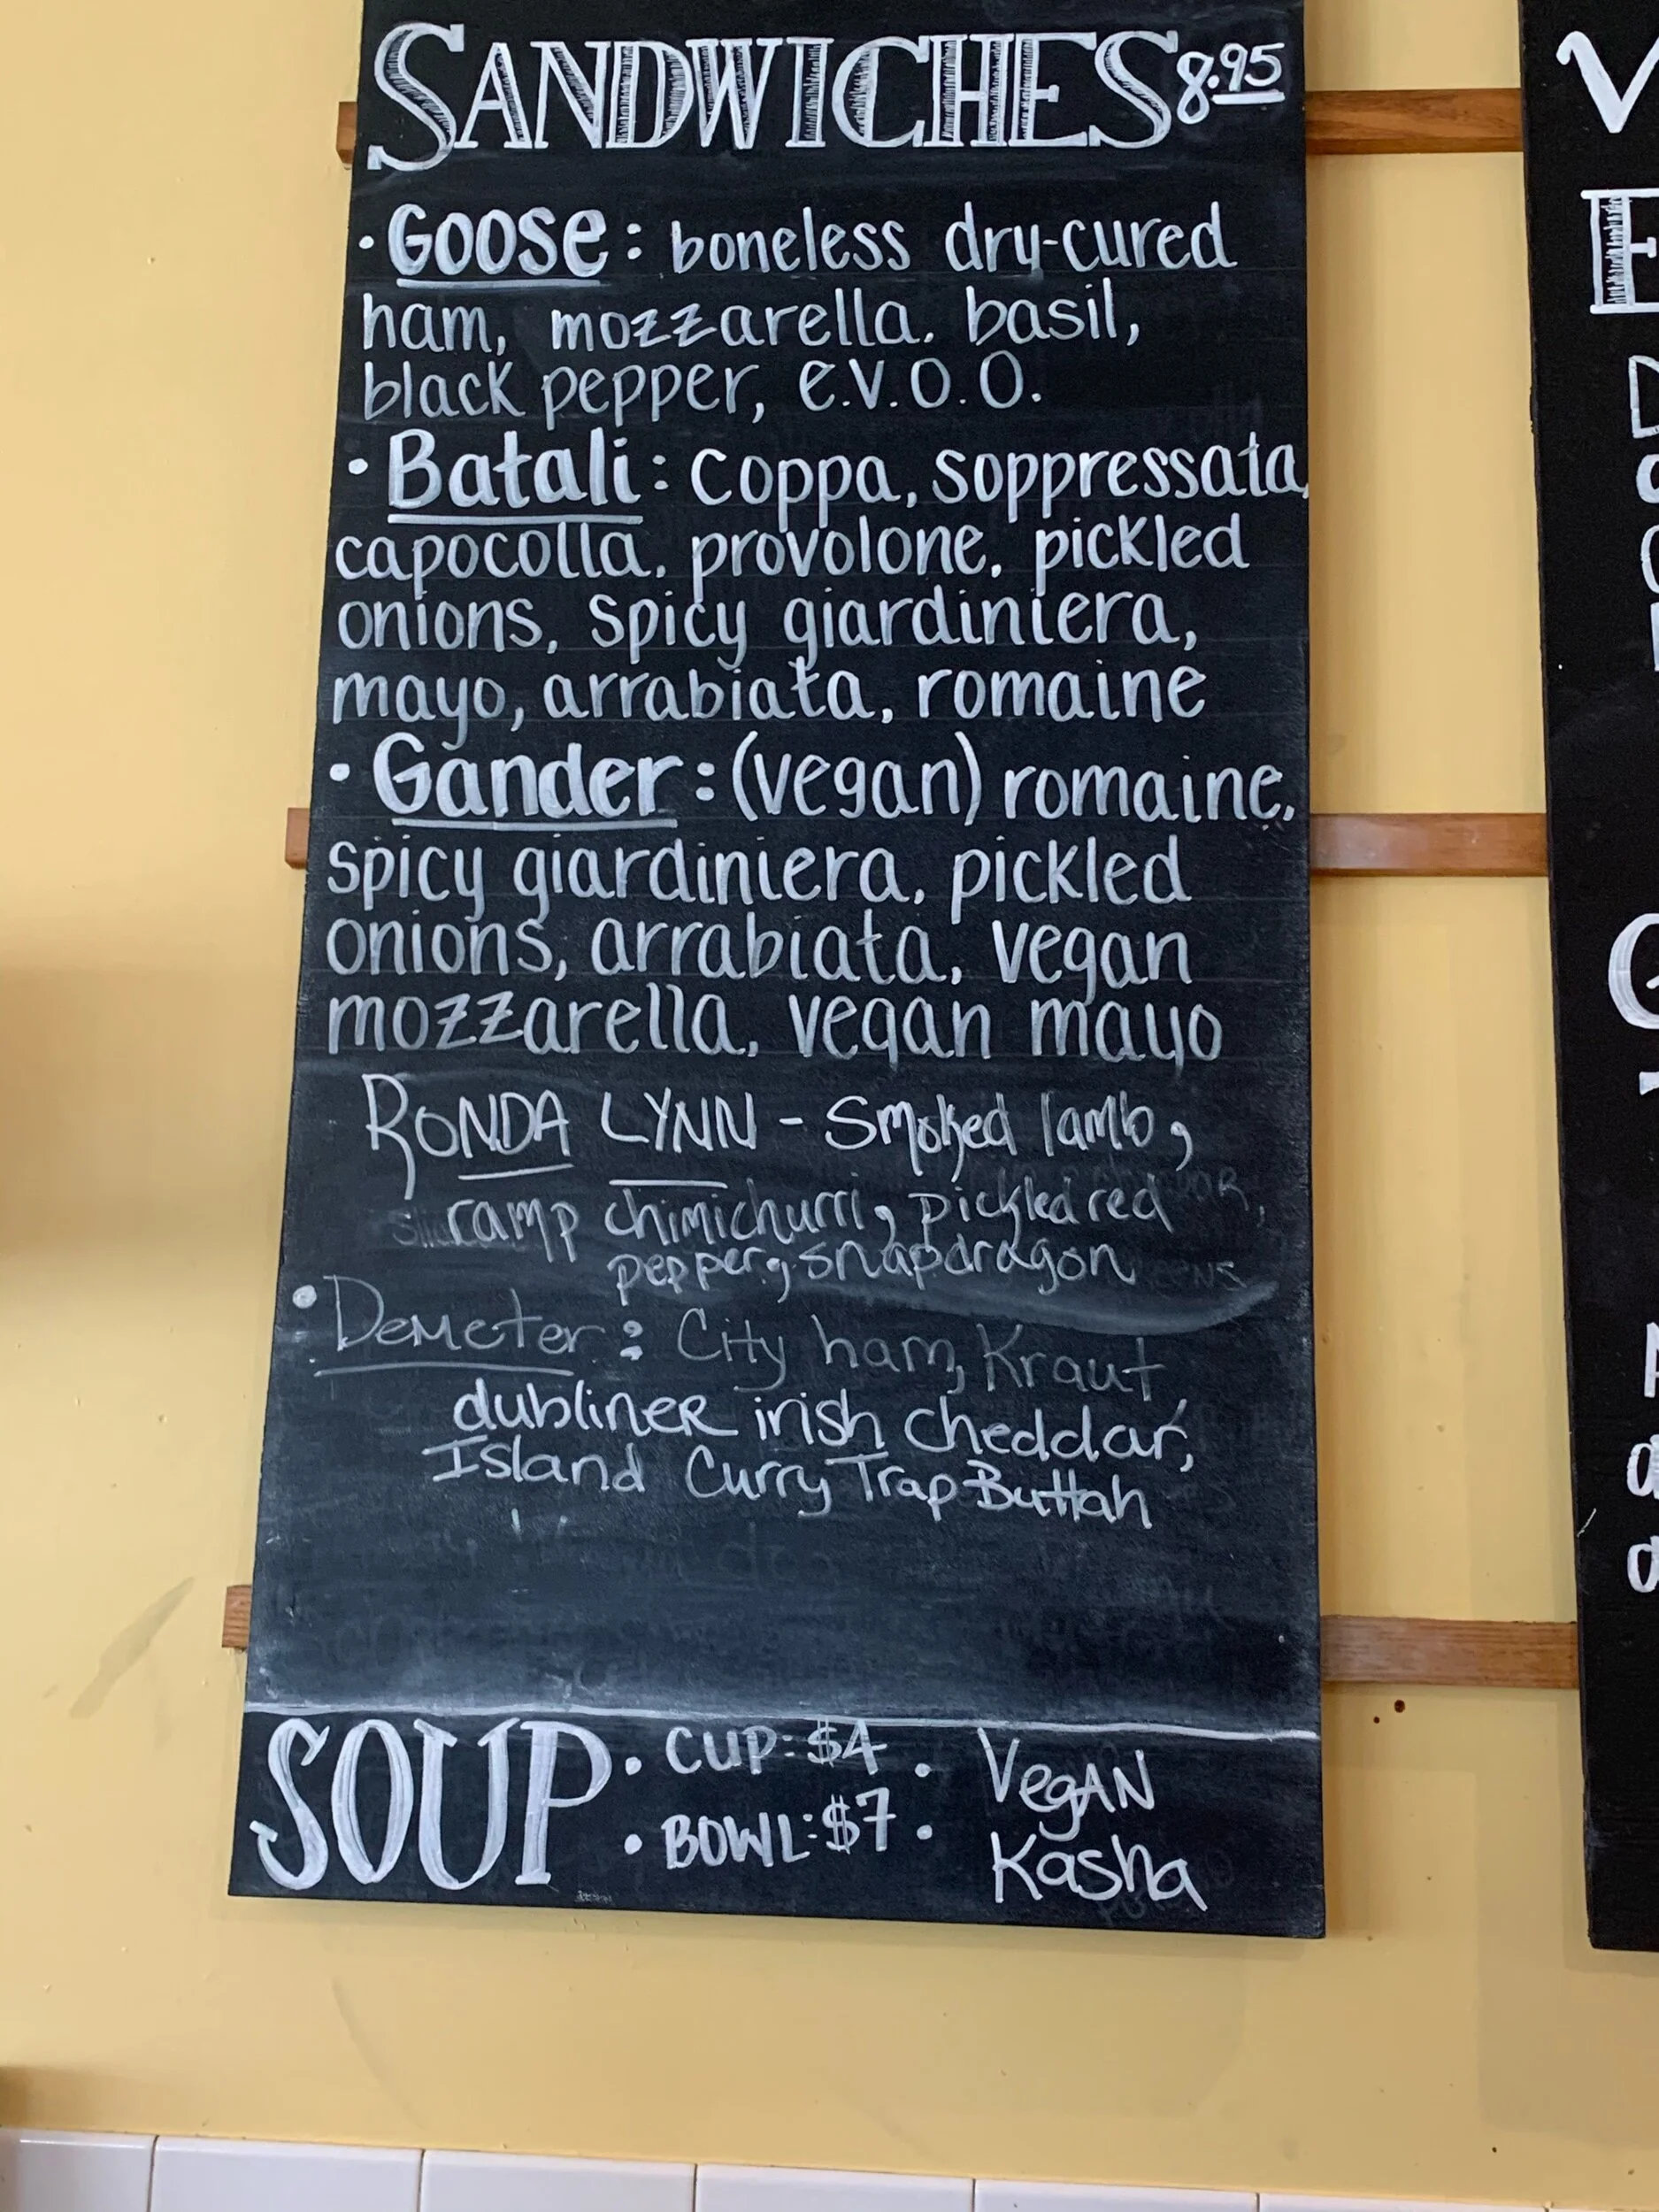 SANDWICHES 8.95
• Goose: boneless dry-cured
ham, mozzarella, basil,
black pepper, e.v.o.o.
• Batali: coppa, soppressata,
capocolla, provolone, pickled
onions, spicy giardiniera,
mayo, arrabiata, romaine
• Gander: (vegan) romaine,
spicy giardiniera, pickled
onions, arrabiata, vegan
mozzarella, vegan mayo
RONDA LYNN - Smoked lamb,
ramp chimichurri, pickled red
pepper, snapdragon
• Demeter: City ham, Kraut,
dubliner irish cheddar,
Island Curry Trap Buttah
SOUP • CUP: $4 • Vegan
• BOWL: $7 • Kasha